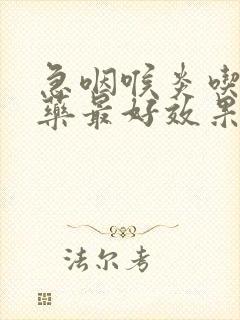 急咽喉炎喫
藥最好效果
法尔考